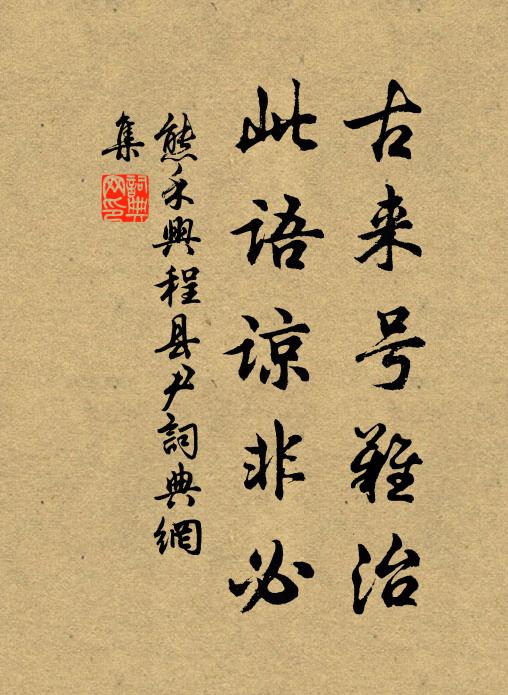 古来号难治
此语谅非必
熊禾興程县尹詞典網
集
詞典
网印